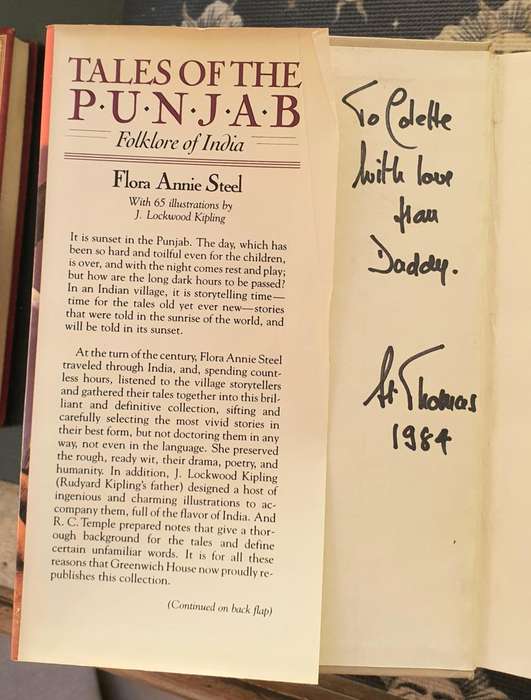 TALES OF THE
P·U·N·J·A·B
Folklore of India
Flora Annie Steel
With 65 illustrations by
J. Lockwood Kipling
It is sunset in the Punjab. The day, which has
been so hard and toilful even for the children,
is over, and with the night comes rest and play;
but how are the long dark hours to be passed?
In an Indian village, it is storytelling time—
time for the tales old yet ever new—stories
that were told in the sunrise of the world, and
will be told in its sunset.
At the turn of the century, Flora Annie Steel
traveled through India, and, spending count-
less hours, listened to the village storytellers
and gathered their tales together into this bril-
liant and definitive collection, sifting and
carefully selecting the most vivid stories in
their best form, but not doctoring them in any
way, not even in the language. She preserved
the rough, ready wit, their drama, poetry, and
humanity. In addition, J. Lockwood Kipling
(Rudyard Kipling's father) designed a host of
ingenious and charming illustrations to ac-
company them, full of the flavor of India. And
R. C. Temple prepared notes that give a thor-
ough background for the tales and define
certain unfamiliar words. It is for all these
reasons that Greenwich House now proudly re-
publishes this collection.
(Continued on back flap)
To Colette
with love
from
Daddy.
St Thomas
1984